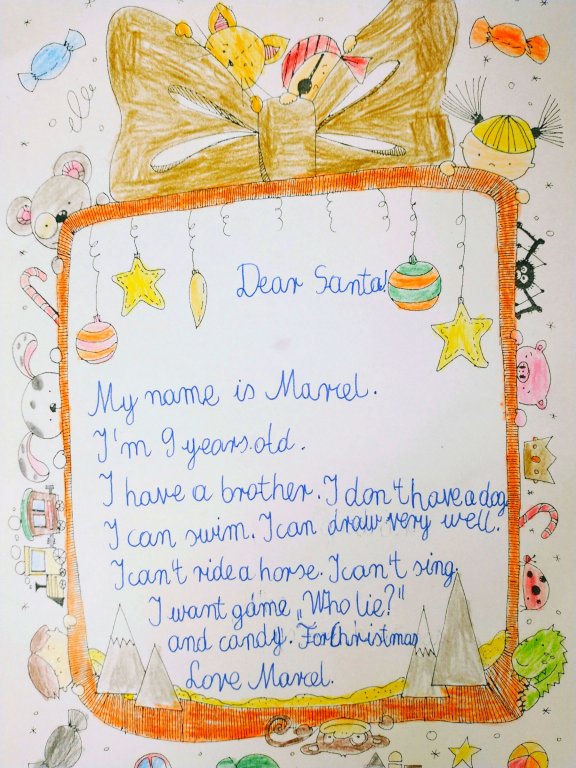 Dear Santa!
My name is Marcel.
I'm 9 years old.
I have a brother. I don't have a dog.
I can swim. I can draw very well.
I can't ride a horse. I can't sing.
I want game „Who lie?"
and candy. For Christmas
Love Marcel.